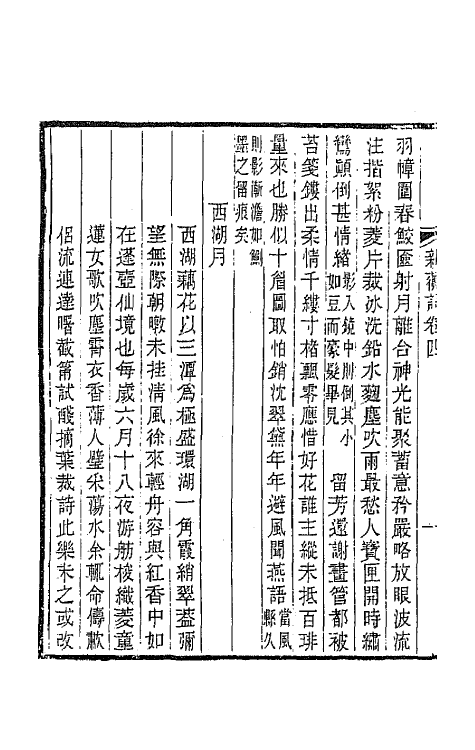 新蘅詞卷四
羽幛圍春鮫匳射月離合神光能聚蓄意矜嚴略放眼波流
注揩絮粉菱片裁冰洗鉛水麴塵吹雨最愁人寶匣開時繡
鸞顛倒甚情緒影入鏡中則倒其小如豆而豪髮畢見 留芳還謝畫管都被
苔箋鏤出柔情千縷寸格飄零應惜好花誰主縱未抵百琲
量來也勝似十眉圖取怕銷沈翠黛年年避風聞燕語當風縣久
則影漸澹如鮒墨之留痕矣
西湖月
西湖藕花以三潭爲極盛環湖一角霞綃翠蓋彌
望無際朝暾未挂清風徐來輕舟容與紅香中如
在蓬壺仙境也每歲六月十八夜游舫梭織菱童
蓮女歌吹塵霄衣香薄人璧采蕩水余輒命儔歗
侶流連達曙截筩試酸摘葉裁詩此樂未之或改